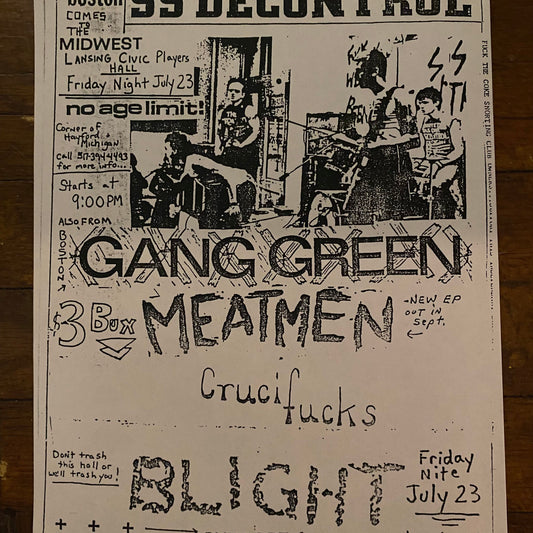 boston
SS DECONTROL
COMES
TO
THE
MIDWEST
LANSING CIVIC Players
HALL
Friday Night July 23
no age limit!
Corner of
Hayford &
Michigan
call 517-394-4493
for more info...
Starts at
9:00PM
ALSO FROM
BOSTON
GANG GREEN
$3 Bux
MEATMEN
-NEW EP
OUT IN
Sept.
Crucifucks
Don't trash
this hall or
we'll trash you!
BLIGHT
Friday
Nite
July 23
FUCK THE COKE SNORTING CLUB